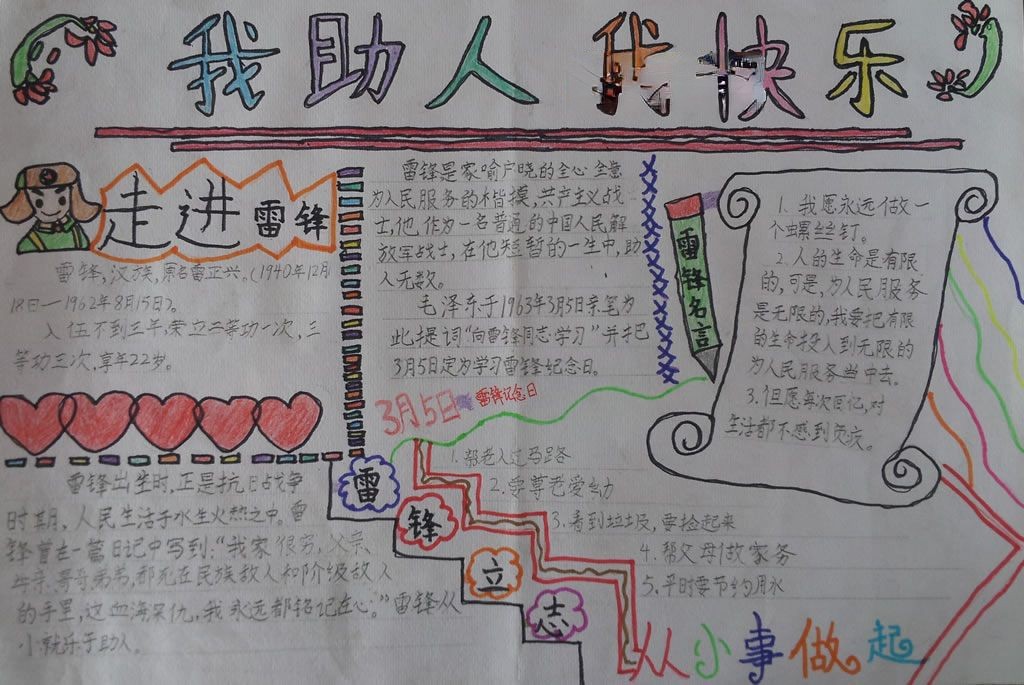 我助人我快乐
走进雷锋
雷锋,汉族,原名雷正兴。(1940年12月
18日—1962年8月15日)。
入伍不到三年,荣立二等功一次,三
等功三次,享年22岁。
雷锋出生时,正是抗日战争
时期,人民生活于水生火热之中。雷
锋曾在一篇日记中写到:“我家很穷,父亲、
母亲、哥哥弟弟,都死在民族敌人和阶级敌人
的手里,这血海深仇,我永远都铭记在心。”雷锋从
小就乐于助人。
雷锋是家喻户晓的全心全意
为人民服务的楷摸,共产主义战
士,他,作为一名普通的中国人民解
放军战士,在他短暂的一生中,助
人无数。
毛泽东于1963年3月5日亲笔为
此提词“向雷锋同志学习”并把
3月5日定为学习雷锋纪念日。
3月5日
雷锋记念日
雷锋立志
1.帮老人过马路
2.要尊老爱幼
3.看到垃圾,要捡起来
4.帮父母做家务
5.平时要节约用水
从小事做起
雷锋名言
1.我愿永远做一
个螺丝钉。
2.人的生命是有限
的,可是,为人民服务
是无限的,我要把有限
的生命投入到无限的
为人民服务当中去。
3.但愿每次回忆,对
生活都不感到负疚。